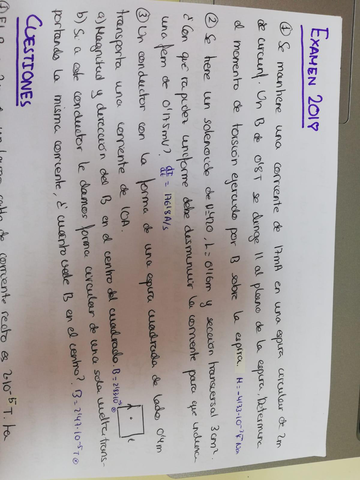 EXAMEN 2018
① Se mantiene una corriente de 17mA en una espira circular de 2m
de circunf. Un B de 0'8T se dirige || al plano de la espira. Determina
el momento de torsión ejercido por B sobre la espira.
② Se tiene un solenoide de N=420, L=0'16m y sección transversal 3cm².
¿Con qué rapidez uniforme debe disminuir la corriente para que induzca
una fem de 0'175mV?
③ Un conductor con la forma de una espira cuadrada de lado 0'4m
transporta una corriente de 10A.
a) Magnitud y dirección del B en el centro del cuadrado.
b) Si a este conductor le damos forma circular de una sola vuelta trans-
portando la misma corriente, ¿cuánto vale B en el centro?
CUESTIONES